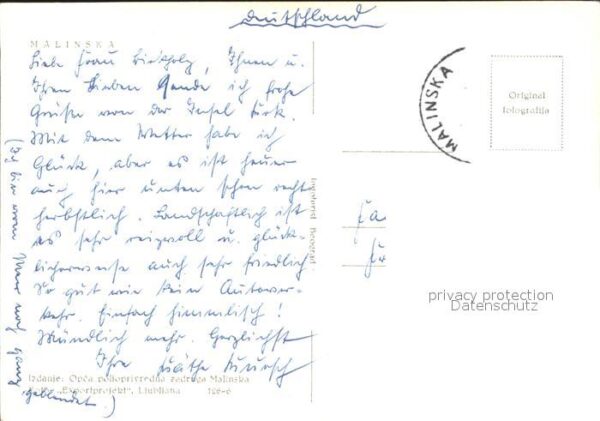 Deutschland
MALINSKA
Liebe Frau Birkholz, Ihnen u.
Ihren Lieben sende ich frohe
Grüße von der Insel Krk.
Mit dem Wetter habe ich
Glück, aber es ist heuer
auch hier unten schon recht
herbstlich. Landschaftlich ist
es sehr reizvoll u. glück-
licherweise auch sehr friedlich
So gut wie kein Autover-
kehr. Einfach himmlisch!
Mündlich mehr. Herzlichst
Ihre Käthe
(Ich bin vom Meer noch ganz
geblendet.)
Izdanje: Opća poljoprivredna zadruga Malinska
"Exportprojekt", Ljubljana 126-6
Jugokerist Beograd
MALINSKA
Original
fotografija
Fa
Fr
privacy protection
Datenschutz